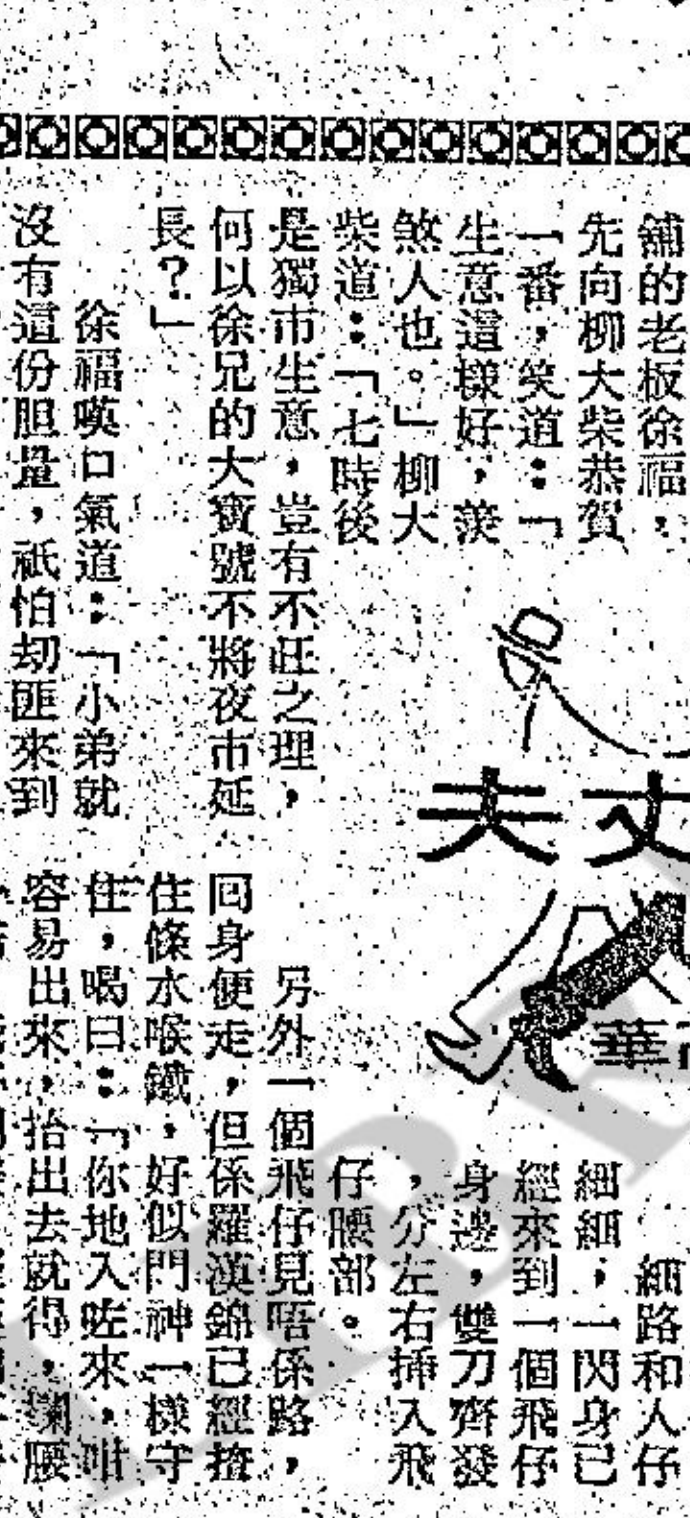 舖的老板徐福，
先向柳大柴恭賀
一番，笑道：「
生意這樣好，羨
煞人也。」柳大
柴道：「七時後
是獨市生意，豈有不旺之理，
何以徐兄的大寳號不將夜市延
長？」
徐福嘆口氣道：「小弟就
沒有這份胆量，祇怕刼匪來到
丈夫
華
細路和人仔
細細，一閃身已
經來到一個飛仔
身邊，雙刀齊發
，分左右揷入飛
仔腰部。
另外一個飛仔見唔係路，
回身便走，但係羅漢錦已經揸
住條水喉鐵，好似門神一樣守
住，喝曰：「你地入咗來，咁
容易出來，抬出去就得，攔腰